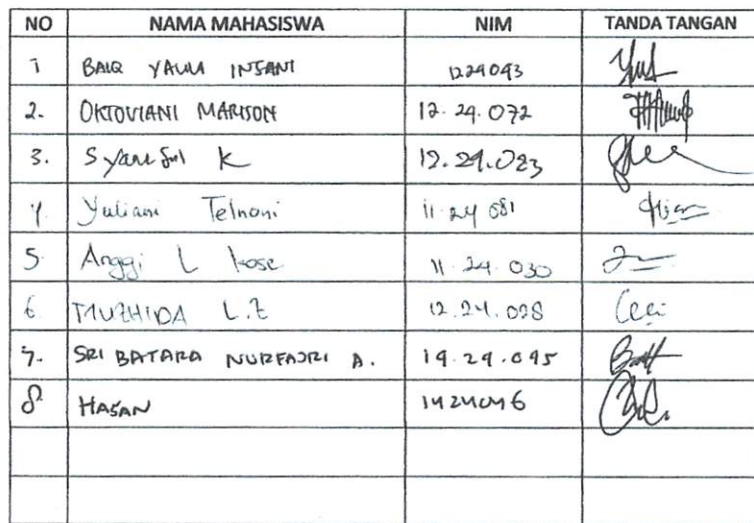 NO NAMA MAHASISWA NIM TANDA TANGAN
1 BAIQ YAUMA INSANI 1224043
2. OKTOVIANI MARISON 12.24.072
3. Syaruful K 12.24.023
4. Yuliani Telnoni 11.24 081
5. Anggi L kose 11.24.030
6. MUZHIDA L.Z 12.24.028
7. SRI BATARA NURFAJRI A. 14.24.045
8 HASAN 1424046